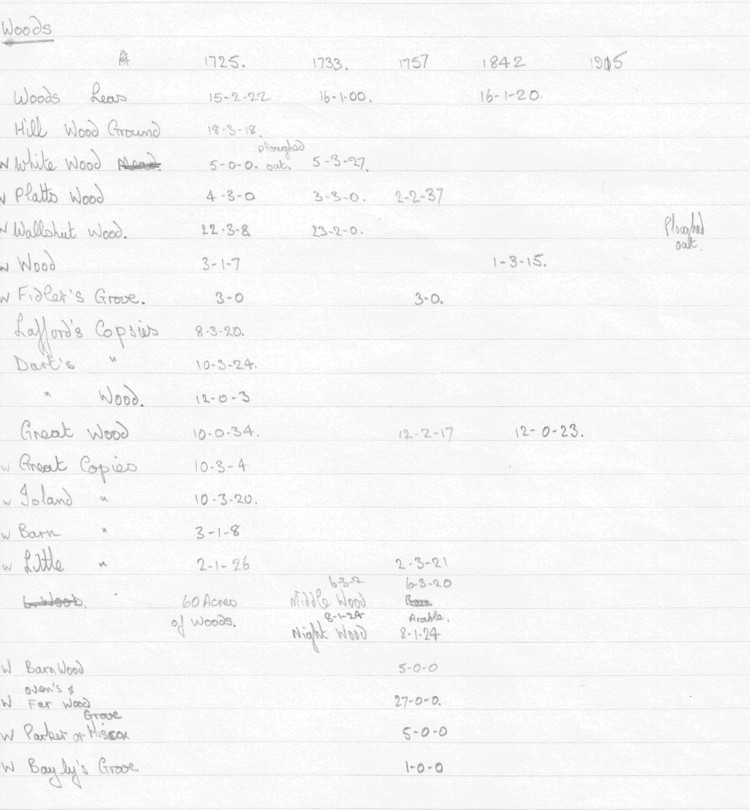 Woods
A 1725. 1733. 1757 1842 1915
Woods Leas 15-2-22 16-1-00. 16-1-20.
Hill Wood Ground 18-3-18.
W White Wood 5-0-0. ploughed out. 5-3-27.
W Platts Wood 4-3-0 3-3-0. 2-2-37
W Wallshut Wood. 22-3-8 23-2-0. Ploughed out.
W Wood 3-1-7 1-3-15.
W Fidler's Grove. 3-0 3-0.
Lafford's Copsies 8-3-20.
Dart's " 10-3-24.
" Wood. 12-0-3
Great Wood 10-0-34. 12-2-17 12-0-23.
W Great Copies 10-3-4
W Island " 10-3-20.
W Barn " 3-1-8
W Little " 2-1-26 2-3-21
6-3-2 6-3-20
60 Acres Middle Wood
of Woods. 8-1-24 Arable.
Night Wood 8-1-24
W Barn Wood 5-0-0
Oven's &
W Far Wood 27-0-0.
Grove
W Parker or Hiscox 5-0-0
W Bayly's Grove 1-0-0